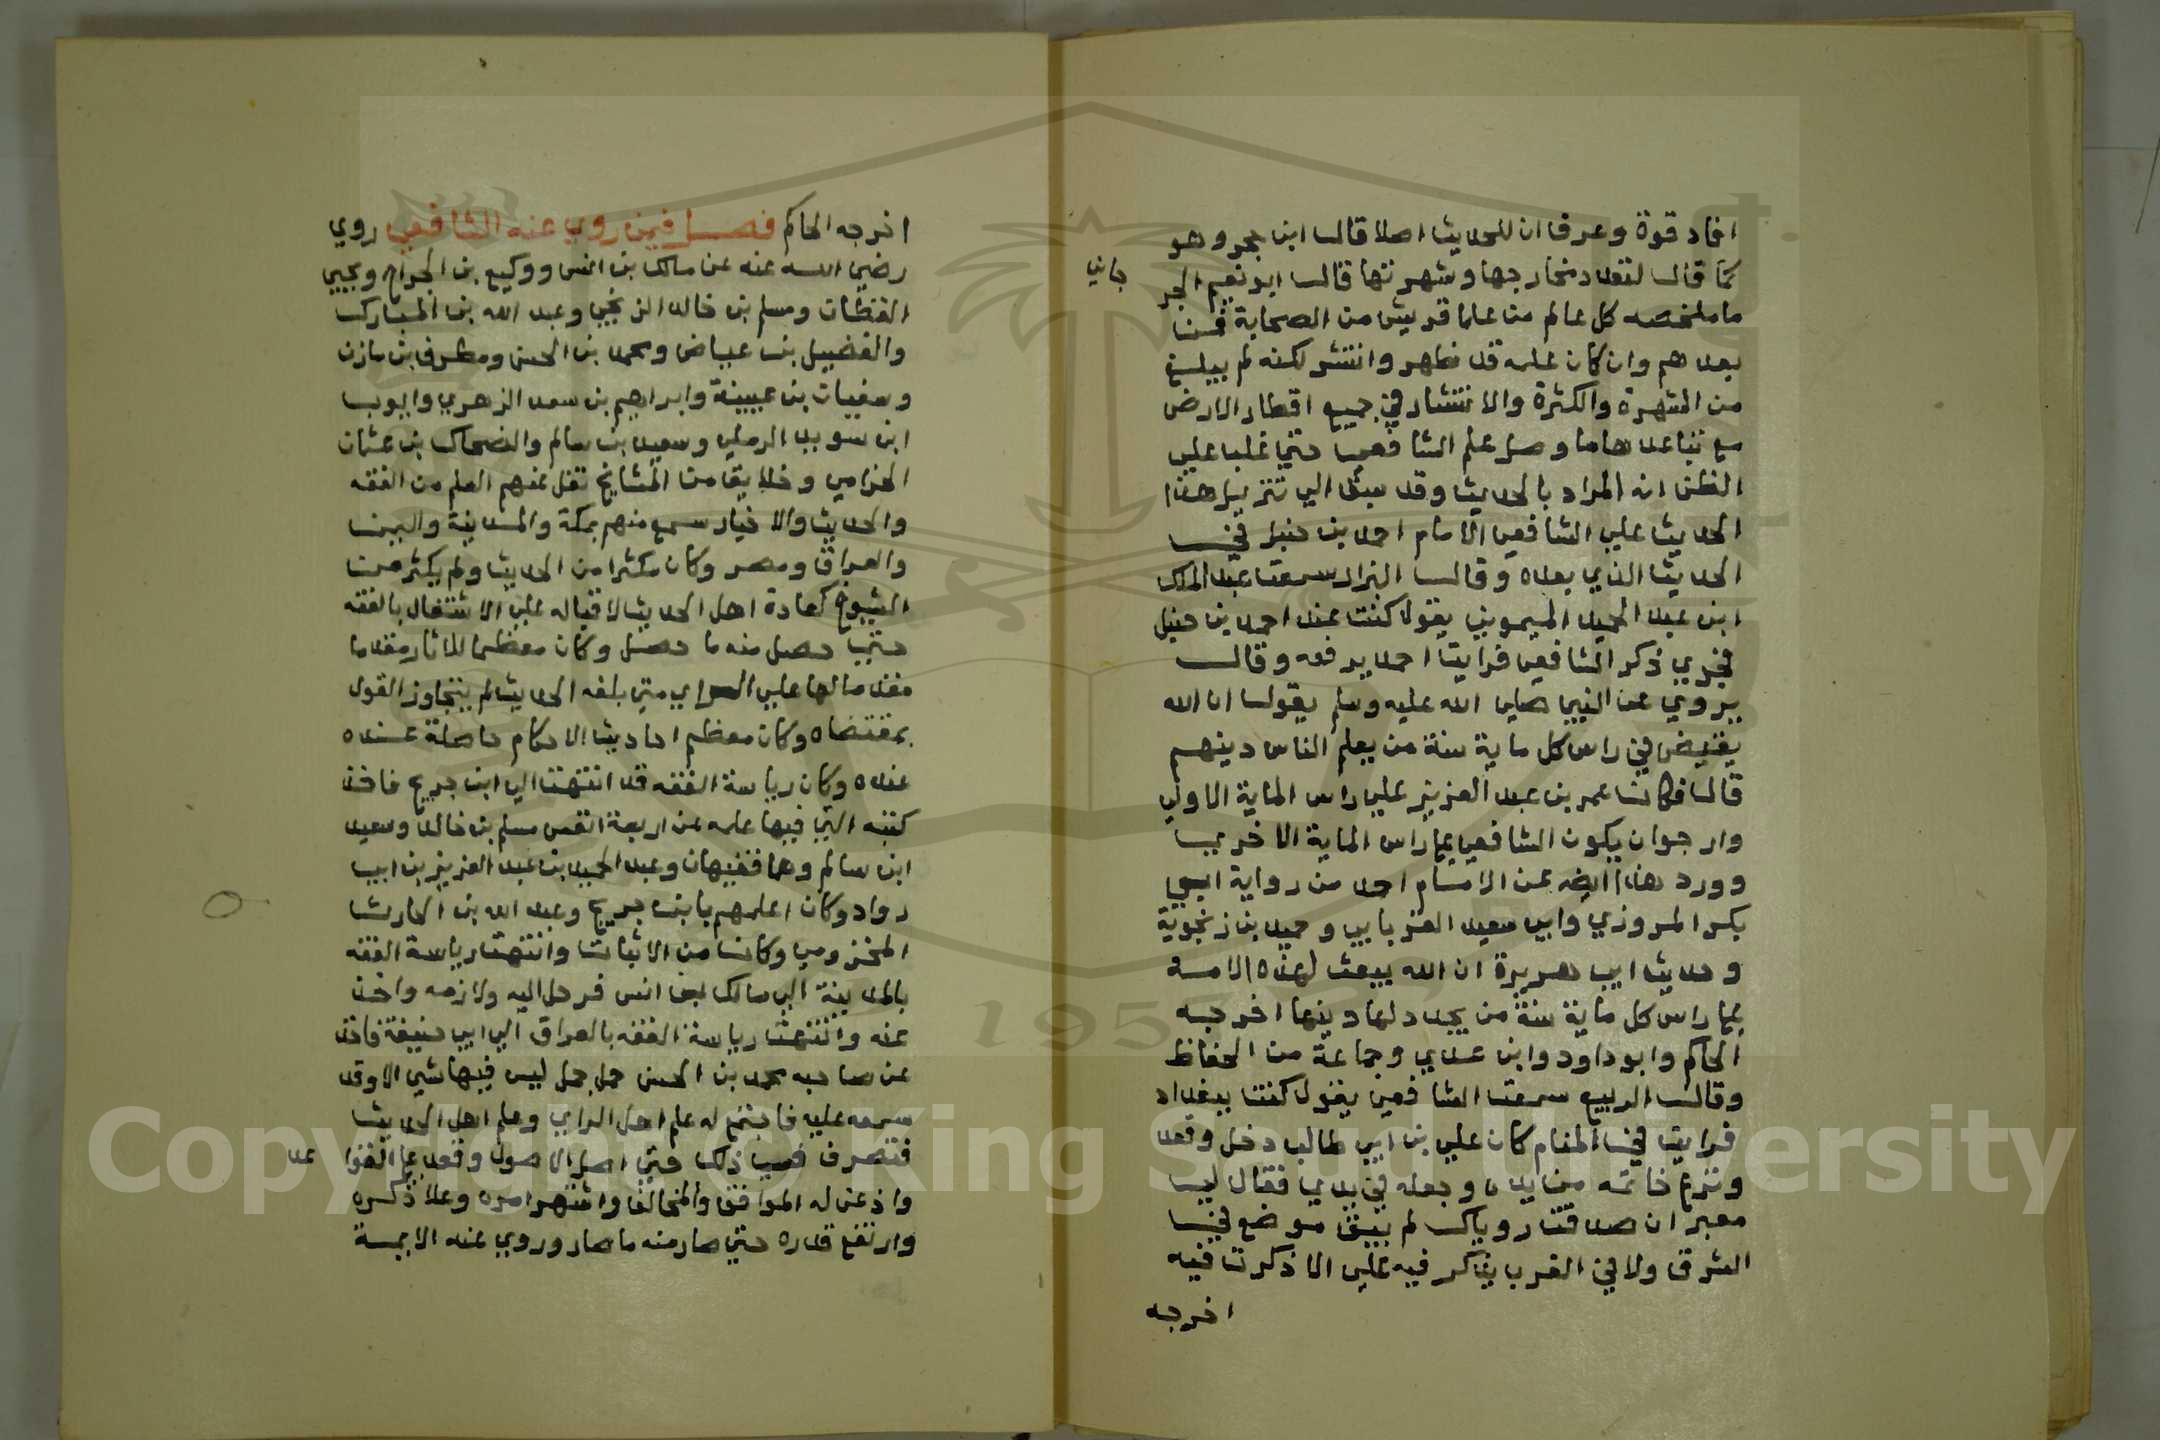 افاد قوة وعرف ان للحديث اصلا قال ابن حجر وهو
كما قال لتعدد مخارجها وشهرتها قال ابو نعيم الجر
جاني
ما ملخصه كل عالم من علما قريش من الصحابة فمن
بعدهم وان كان علمه قد ظهر وانتشر لكنه لم يبلغ
من الشهرة والكثرة والانتشار في جميع اقطار الارض
مع تباعدها ما وصل علم الشافعي حتي غلب علي
الظن انه المراد بالحديث وقد سبق الي تنزيل هذا
الحديث علي الشافعي الامام احمد بن حنبل في
الحديث الذي بعده وقال البزار سمعت عبد الملك
ابن عبد الحميد الميموني يقول كنت عند احمد بن حنبل
فجري ذكر الشافعي فرايت احمد يرفعه وقال
يروي عن النبي صلي الله عليه وسلم يقول ان الله
يقيض في راس كل ماية سنة من يعلم الناس دينهم
قال فكانت عمر بن عبد العزيز علي راس الماية الاولي
وارجوان يكون الشافعي علي راس الماية الاخري
وورد هذا ايضه عن الامام احمد من رواية ابي
بكر المروزي وابي سعيد الفريابي وحميد بن زنجوية
وحديث ابي هريرة ان الله يبعث لهذه الامة
علي راس كل ماية سنة من يجدد لها دينها اخرجه
الحاكم وابو داود وابن عدي وجماعة من الحفاظ
وقال الربيع سمعت الشافعي يقول كنت ببغداد
فرايت في المنام كان علي بن ابي طالب دخل وقعد
ونزع خاتمه من يده وجعله في يدي فقال لي
معبر ان صدقت روياك لم يبق موضع في
الشرق ولا في الغرب يذكر فيه علي الا ذكرت فيه
اخرجه
اخرجه الحاكم فصل فيمن روي عنه الشافعي روي
رضي الله عنه عن مالك بن انس ووكيع بن الجراح ويحيي
القطان ومسلم بن خالد الزنجي وعبد الله بن المبارك
والفضيل بن عياض ومحمد بن الحسن ومطرف بن مازن
وسفيان بن عيينة وابراهيم بن سعد الزهري وايوب
ابن سويد الرملي وسعيد بن سالم والضحاك بن عثمان
الحزامي وخلايق من المشايخ نقل عنهم العلم من الفقه
والحديث والاخبار سمع منهم بمكة والمدينة واليمن
والعراق ومصر وكان مكثرا من الحديث ولم يكثر من
الشيوخ كعادة اهل الحديث لاقباله علي الاشتغال بالفقه
حتي حصل منه ما حصل وكان معظما للاثار مقدما
مقدما لها علي الراي متي بلغه الحديث لم يتجاوز القول
بمقتضاه وكان معظم احاديث الاحكام حاصلة عنده
عنده وكان رياسة الفقه قد انتهت الي ابن جريج فاخذ
كتبه التي فيها علمه عن اربعة انفس مسلم بن خالد وسعيد
ابن سالم وهما فقيهان وعبد المجيد بن عبد العزيز بن ابي
رواد وكان اعلمهم بابن جريج وعبد الله بن الحارث
المخزومي وكانت من الاثبات وانتهت رياسة الفقه
بالمدينة الي مالك بن انس فرحل اليه ولازمه واخذ
عنه وانتهت رياسة الفقه بالعراق الي ابي حنيفة فاخذ
عن صاحبه محمد بن الحسن حمل جمل ليس فيها شي الا وقد
سمعه عليه فاجتمع له علم اهل الراي وعلم اهل الحديث
فتصرف في ذلك حتي اصل الاصول وقعد القوا عد
واذعن له الموافق والمخالف واشتهر امره وعلا ذكره
وارتفع قدره حتي صار منه ما صار وروي عنه الايمة
Copyright © King Saud University
1957